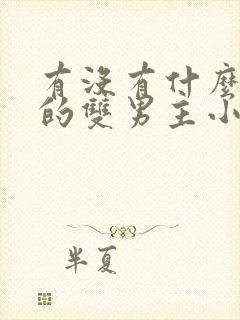 有沒有什麼
的雙男主小
半夏